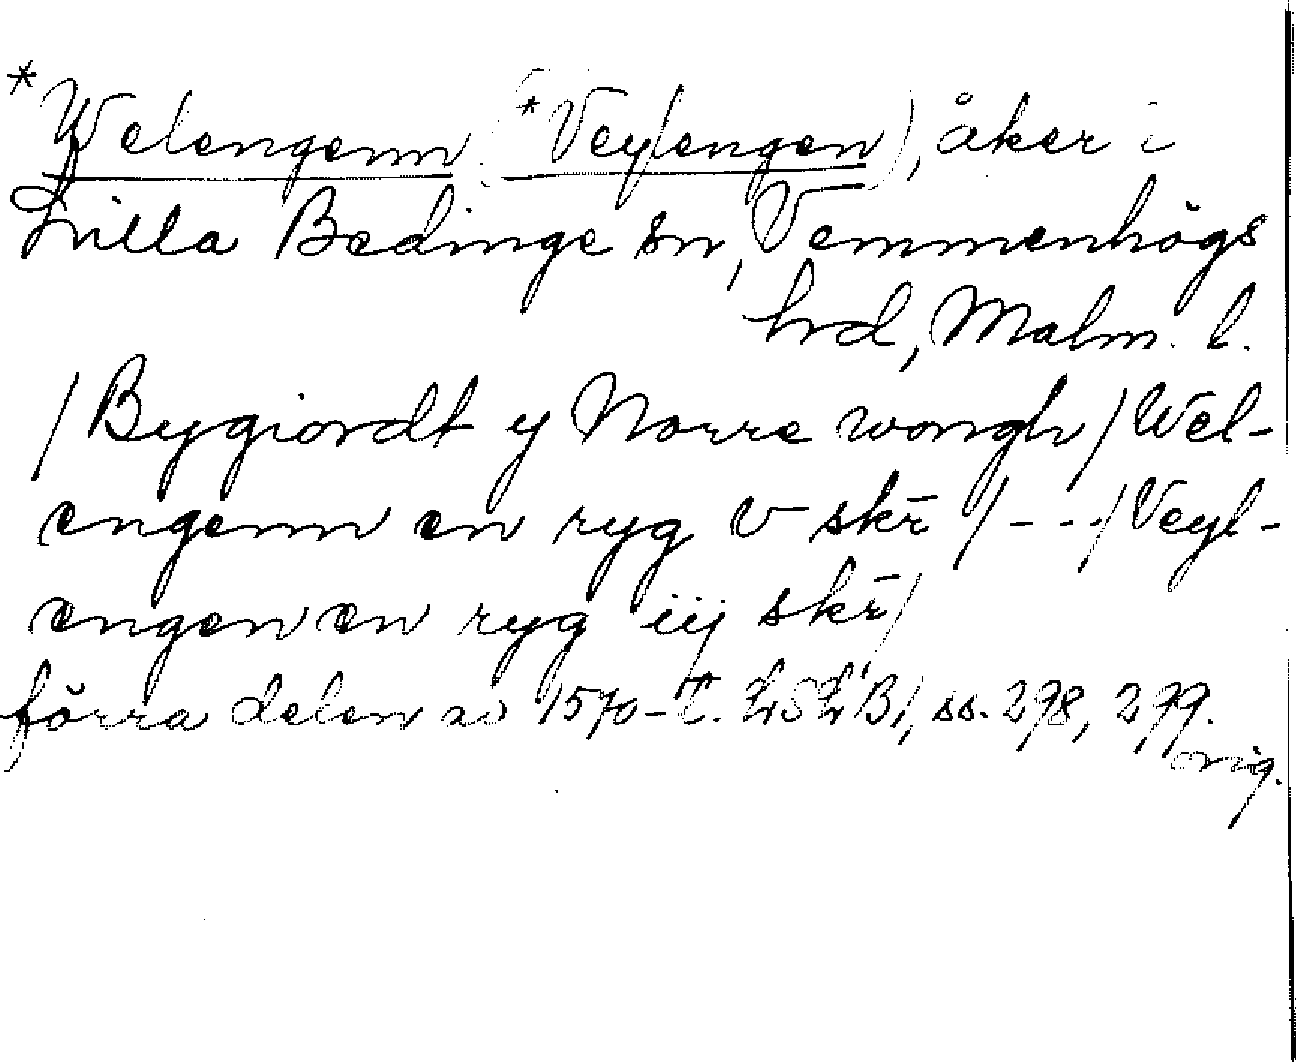 *Welengenn (*Veylengen), åker i
Lilla Bedinge sn, Vemmenhögs
hrd, Malm. l.
/Bygiordt y Norre wongh/ Wel-
engenn en ryg v skr̄ /---/ Veyl-
engen en ryg iij skr̄/
förra delen av 1570-t. LSLB1, ss. 298, 299.
orig.